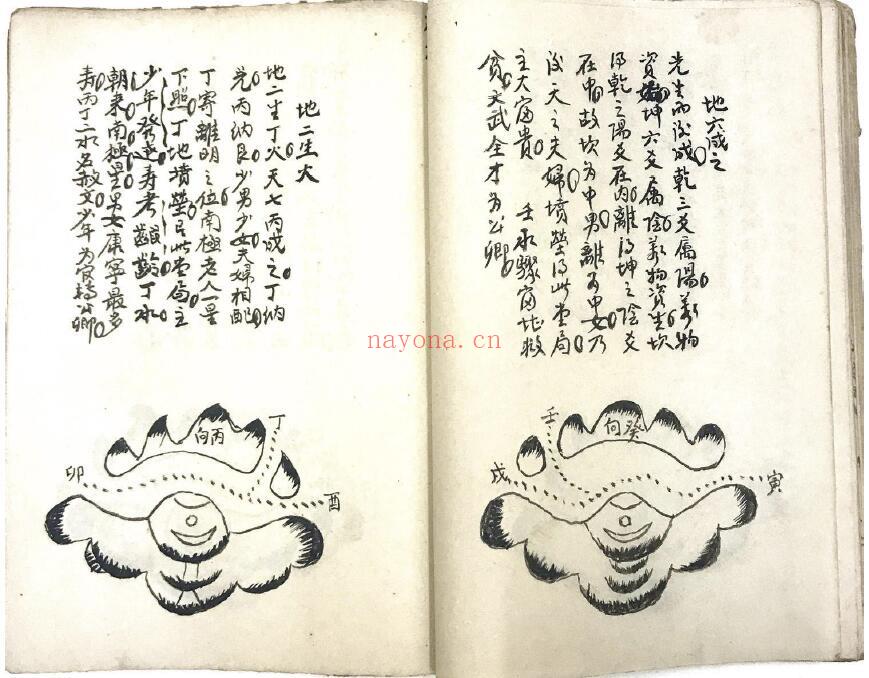 地六成之
先生而后成乾三爻属陽萬物
資始坤六爻属陰萬物資生坎
得乾之陽爻在内離得坤之陰爻
在中故坎为中男離为中女乃
后天之夫婦墳塋得此堂局
主大富貴 壬水驟富地救
貧文武全才为公卿
地二生火
地二生丁火天七丙成之丁納
兑丙納艮少男少女夫婦相配
丁寄離明之位南極老人一星
下照丁地墳塋得此堂局主
少年發達壽考齯齡丁水
朝来南極星男女康寧最多
壽丙丁二水名赦文少年为官轉公卿
壬
癸向
戌
寅
丁
丙向
卯
酉
nayona.cn